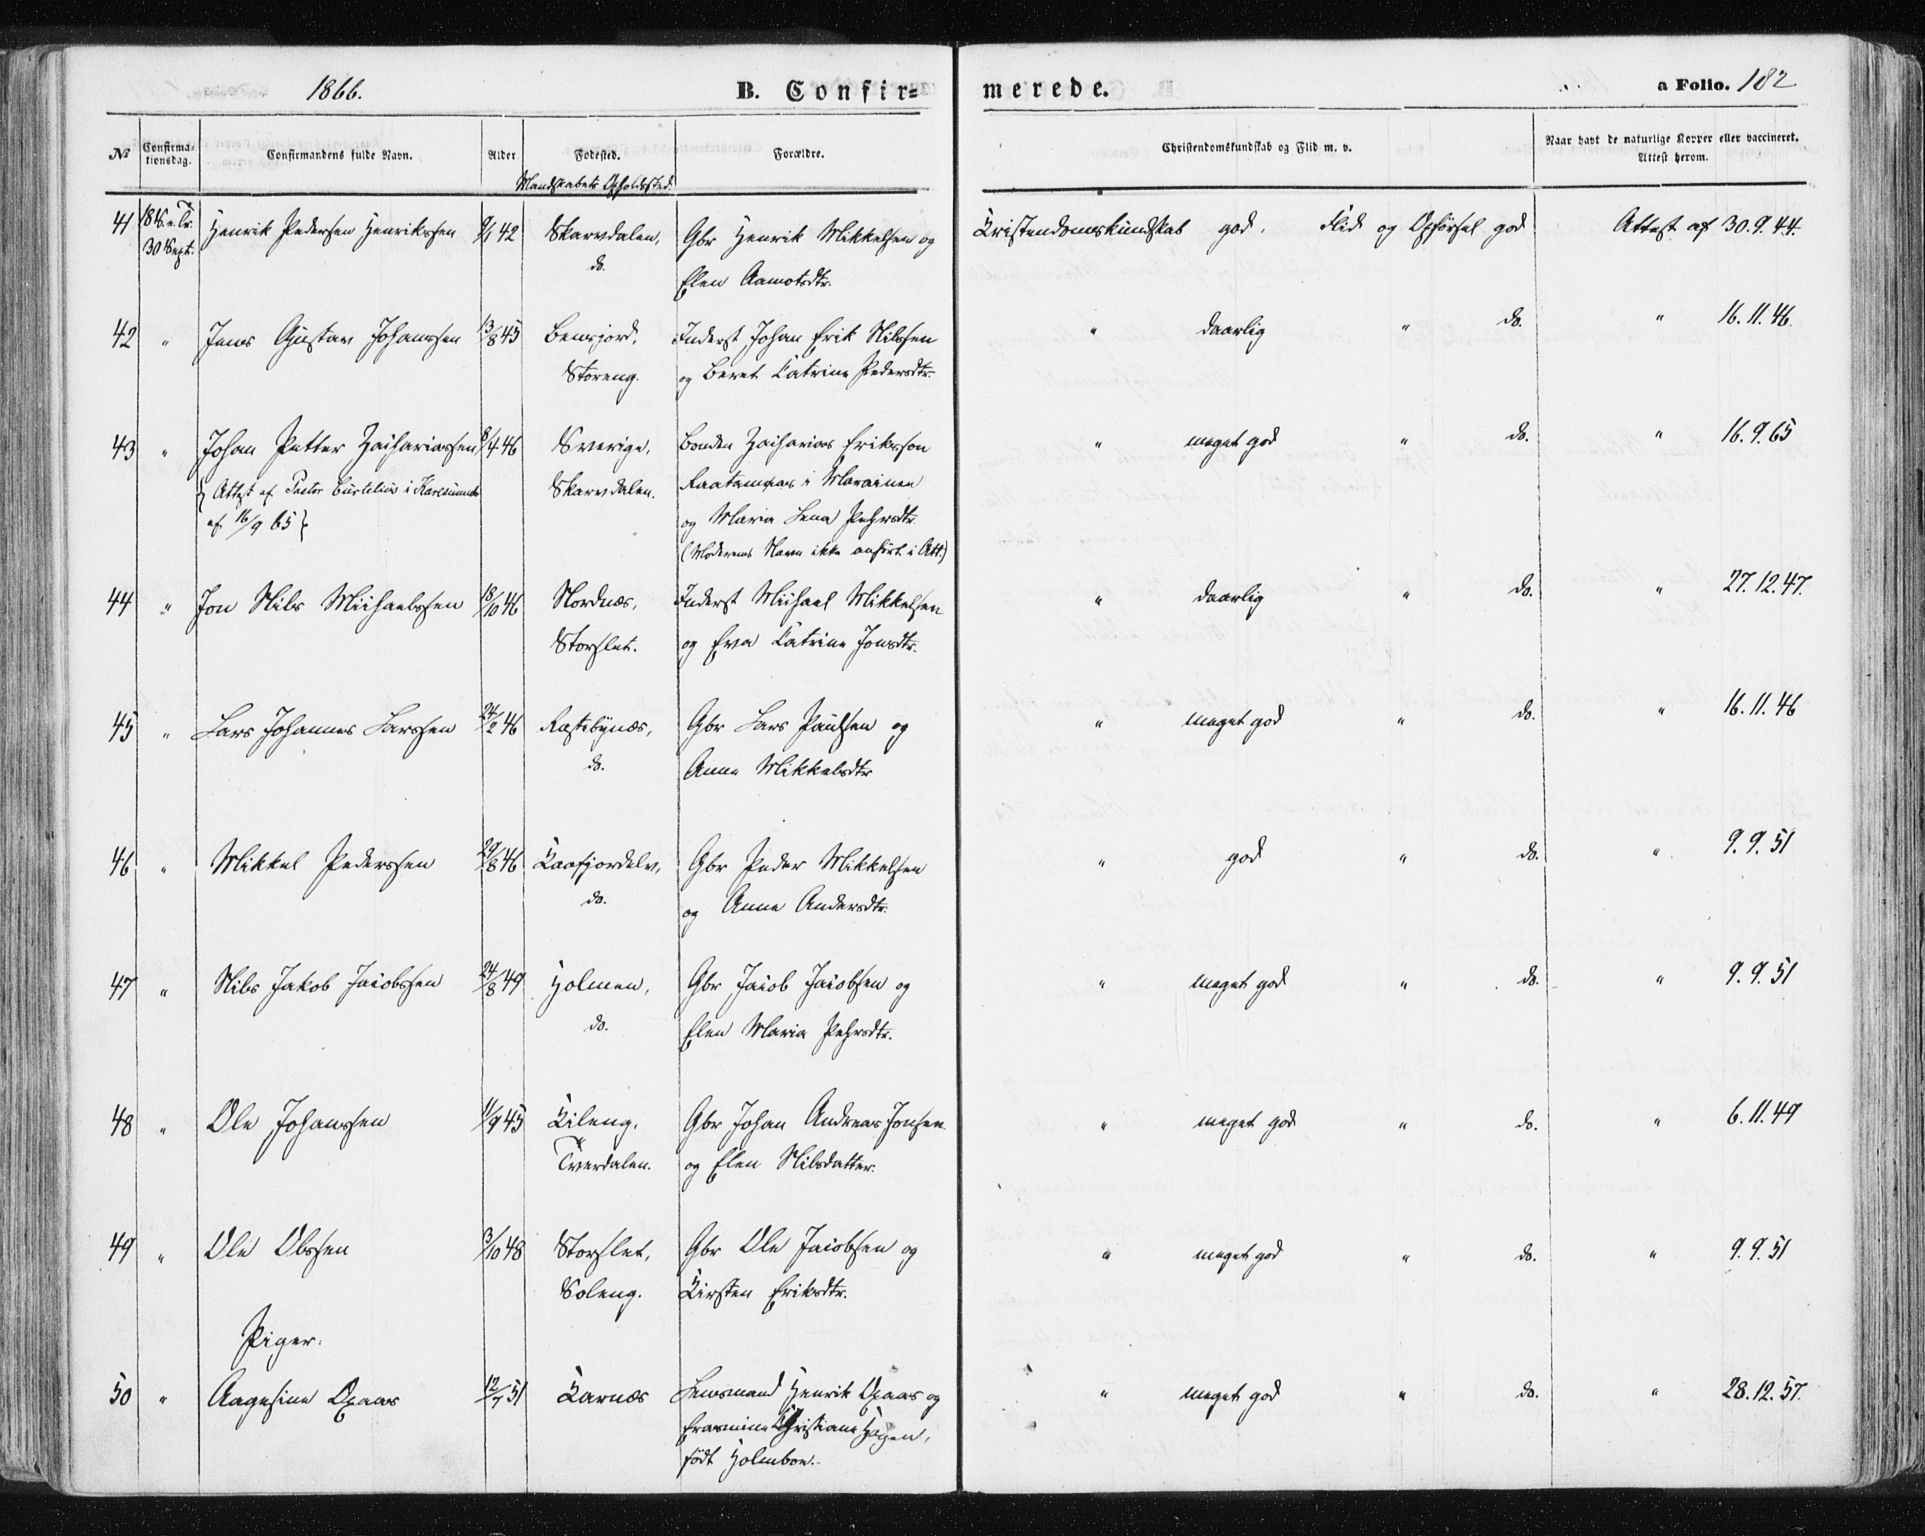 1866.
B. Confir=
merede.
a Folio. 182
No
Confirma-
tionsdag.
Confirmandens fulde Navn.
Alder
Fødested.
Mandskabets Opholdssted.
Forældre.
Christendomskundskab og Flid m. v.
Naar havt de naturlige Kopper eller vaccineret.
Attest herom.
41 18 S. e. Tr. Henrik Pedersen Henrikssen 9/1 42 Skarvdalen, Gbr Henrik Mikkelsen og Kristendomskundskab god. Flid og Opførsel god Attest af 30.9.44.
30 Sept. do. Elen Aamotsdtr.
42 " Jens Gustav Johanssen 13/8 45 Bensjord, Inderst Johan Erik Nilssen " daarlig " do. " 16.11.46.
Storeng. og Beret Catrine Pedersdtr.
43 " Johan Petter Zachariassen 8/4 46 Sverige, Bonden Zacharias Eriksson " meget god " do. " 16.9.65
{Attest af Pastor i Karesuando Skarvdalen. i
af 16/9 65} og Maria Lena Pehrsdtr.
(Moderens Navn ikke anført i Att.)
44 " Jon Nils Michaelssen 18/10 46 Nordnæs, Inderst Michael Mikkelsen " daarlig " do. " 27.12.47.
Storslet. og Eva Catrine Jonsdtr.
45 " Lars Johannes Larssen 24/2 46 Rastebynæs, Gbr Lars Paulsen og " meget god " do. " 16.11.46
do. Anne Mikkelsdtr
46 " Mikkel Pederssen 29/8 46 Kaafjordelv, Gbr Peder Mikkelsen " god " do. " 9.9.51
do. og Anne Andersdtr.
47 " Nils Jakob Jacobssen 24/8 49 Holmen, Gbr Jacob Jacobsen og " meget god " do. " 9.9.51
do. Elen Maria Pehrsdtr.
48 " Ole Johanssen 11/9 45 Kileng, Gbr Johan Andreas Jonsen " meget god " do. " 6.11.49
Tverdalen. og Elen Nilsdatter.
49 " Ole Olssen 3/10 48 Storslet, Gbr Ole Jacobsen og " meget god " do. " 9.9.51
Soleng. Kirsten Eriksdtr.
Piger:
50 " Aagesine Oxaas 12/7 51 Karnæs Lensmand Henrik Oxaas og " meget god " do. " 28.12.57.
Erasmine Christiane Hagen,
født Holmboe.